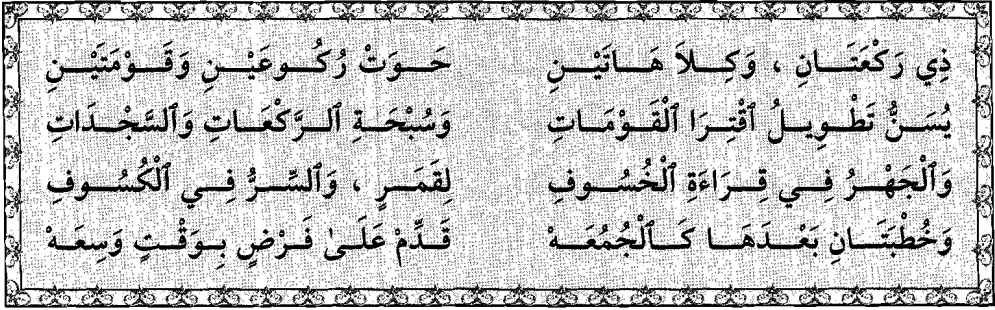 ذِي رَكْعَتَانِ ، وَكِلاَ هَاتَيْنِ حَوَتْ رُكُوعَيْنِ وَقَوْمَتَيْنِ
يُسَنُّ تَطْوِيلُ ٱقْتِرَا ٱلْقَوْمَاتِ وَسُبْحَةِ ٱلرَّكْعَاتِ وَٱلسَّجْدَاتِ
وَٱلْجَهْرُ فِي قِرَاءَةِ ٱلْخُسُوفِ لِقَمَرٍ ، وَٱلسِّرُّ فِي ٱلْكُسُوفِ
وَخُطْبَتَانِ بَعْدَهَا كَٱلْجُمُعَهْ قَدِّمْ عَلَىٰ فَرْضٍ بِوَقْتٍ وَسِعَهْ